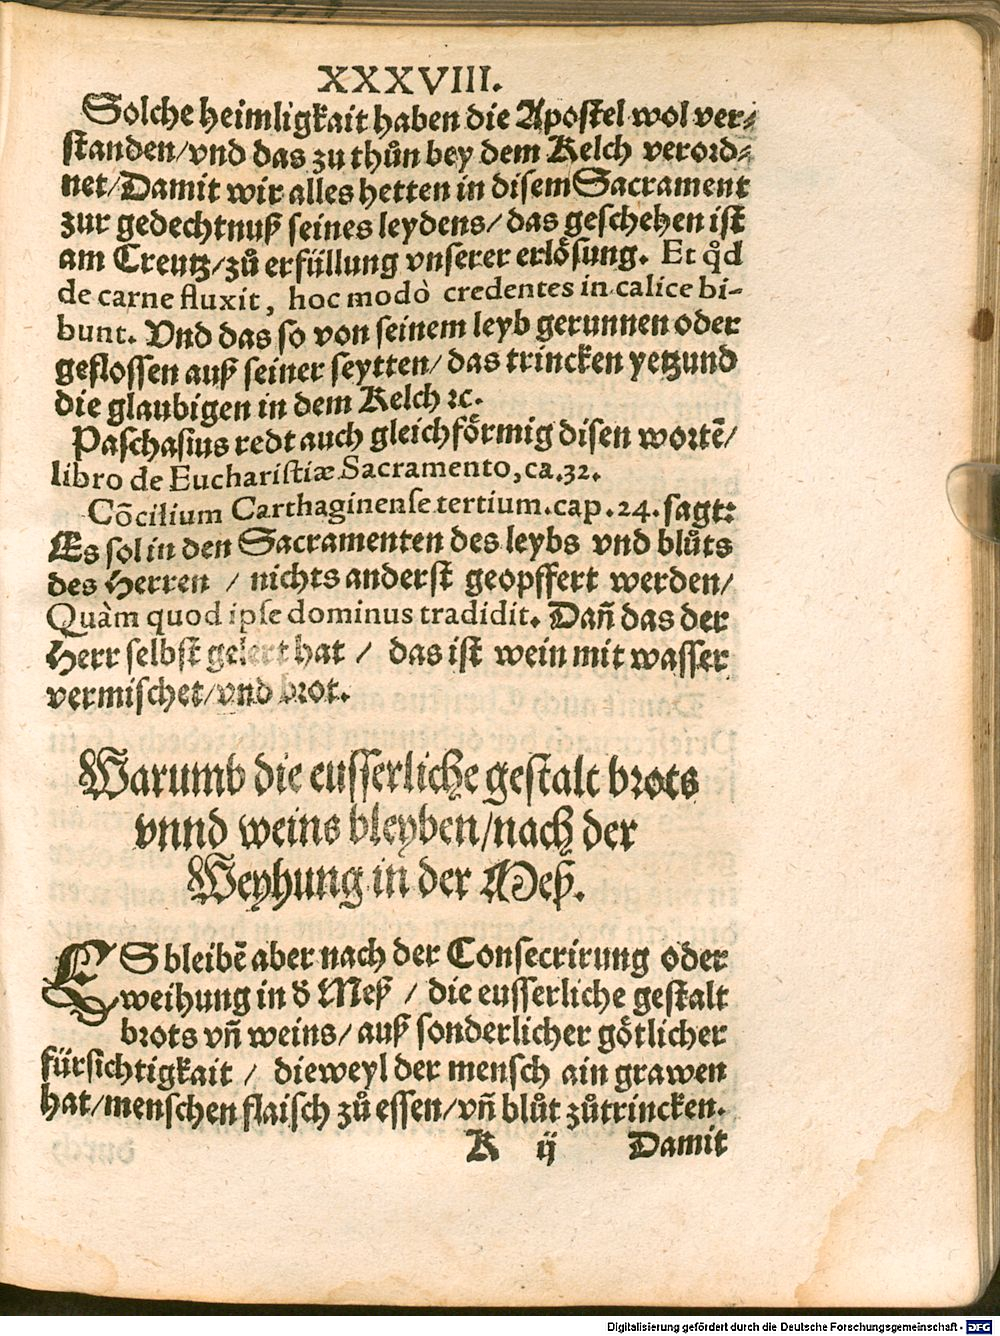 XXXVIII.
Solche heimligkait haben die Apostel wol ver⸗
standen/vnd das zu thůn bey dem Kelch verord⸗
net/Damit wir alles hetten in disem Sacrament
zur gedechtnuß seines leydens/das geschehen ist
am Creutz/zů erfüllung vnserer erlösung. Et qd̊
de carne fluxit, hoc modò credentes in calice bi-
bunt. Vnd das so von seinem leyb gerunnen oder
geflossen auß seiner seytten/das trincken yetzund
die glaubigen in dem Kelch ꝛc.
Paschasius redt auch gleichförmig disen wortẽ/
libro de Eucharistiæ Sacramento, ca.32.
Cõcilium Carthaginense tertium.cap.24.sagt:
Es sol in den Sacramenten des leybs vnd blůts
des Herren / nichts anderst geopffert werden/
Quàm quod ipse dominus tradidit. Dañ das der
Herr selbst gelert hat / das ist wein mit wasser
vermischet/vnd brot.
Warumb die eusserliche gestalt brots
vnnd weins bleyben/nach der
Weyhung in der Meß.
ES bleibẽ aber nach der Consecrirung oder
weihung in d̕ Meß / die eusserliche gestalt
brots vñ weins/auß sonderlicher götlicher
fürsichtigkait / dieweyl der mensch ain grawen
hat/menschen flaisch zů essen/vñ blůt zůtrincken.
K ij Damit
Digitalisierung gefördert durch die Deutsche Forschungsgemeinschaft - DFG